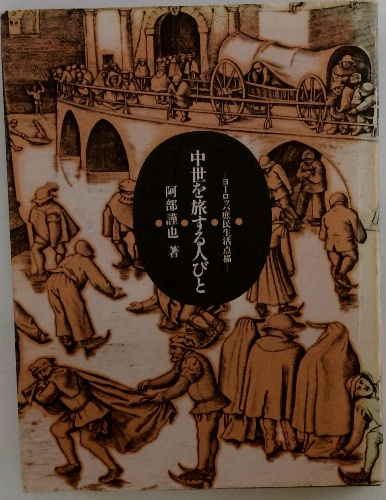 ヨーロッパ庶民生活点描
中世を旅する人びと
阿部謹也 著